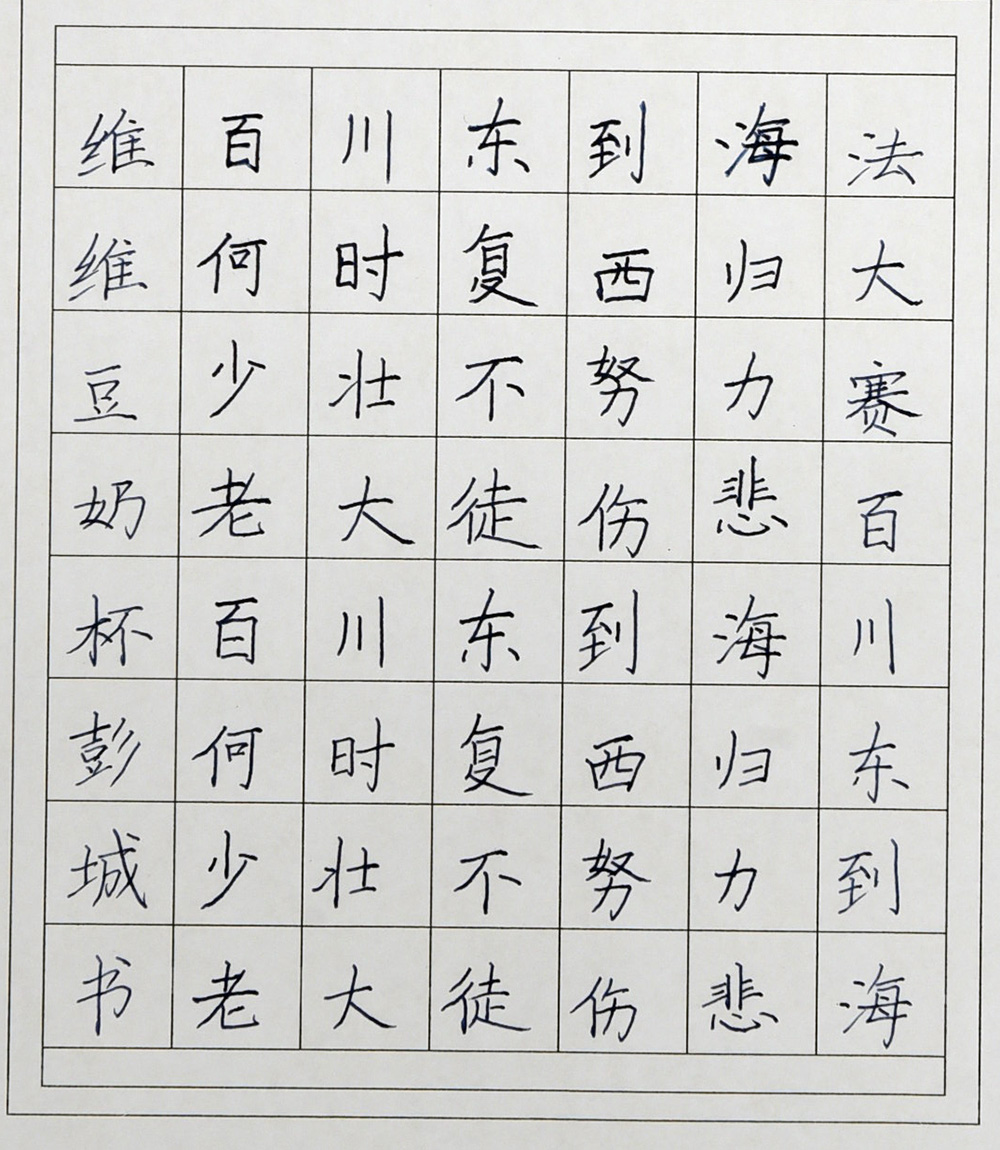 维百川东到海法
维何时复西归大
豆少壮不努力赛
奶老大徒伤悲百
杯百川东到海川
彭何时复西归东
城少壮不努力到
书老大徒伤悲海